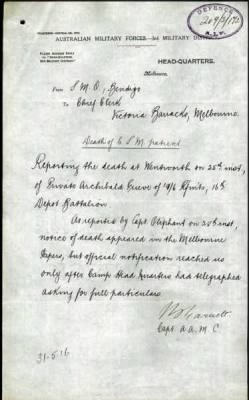 AUSTRALIAN MILITARY FORCES—3rd MILITARY DISTRICT
DEFENCE
A.I.F.
HEAD-QUARTERS,
Melbourne,
From S. M. O, Bendigo
To Chief Clerk
Victoria Barracks, Melbourne.
Death of C S M patient
Reporting the death at Wentworth on 25th inst,
of Private Archibald Grieve of 19/6 Rfmts, 16th
Depot Battalion
As reported by Capt Oliphant on 25th inst,
notice of death appeared in the Melbourne
Papers, but official notification reached us
only after Camp Head Quarters had telegraphed
asking for full particulars.
Capt A. A. M. C
31-5-16